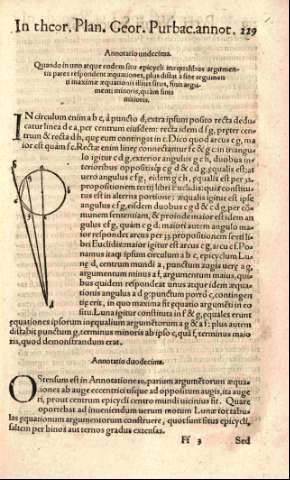 In theor. Plan. Geor. Purbac. annot. 229
Annotatio undecima.
Quando in uno atque eodem situ epicycli inæqualibus argumen-
tis pares respondent æquationes, plus distat a sine argumen
ti maximæ æquationis illius situs, finis argu-
menti minoris, quàm finis
maioris.
IN circulum enim a b c, à puncto d, extra ipsum posito recta dedu-
catur linea d e a per centrum eiusdem: recta idem d f g, præter cen-
trum & recta d h, quę eum contingat in c. Dico quod arcus c g, ma
ior est quàm f c. Recte enim lineę connectantur f c & g c in triangu-
lo igitur c d g, exterior angulus g c h, duobus in-
terioribus oppositisq́; c g d & c d g, equalis est: at
uerò angulo c f g, eidem g c h, equalis est per 32.
propositionem tertij libri Euclidis: quia constitu
tus est in alterna portione: æqualis igitur est ipse
angulus c f g, eisdem duobus c g d & c d g, per cō-
munem sententiam, & proinde maior est idem an
gulus c f g, quàm c g d. maiori autem angulo ma-
ior respondet arcus per 33. propositionem sexti li-
bri Euclidis: maior igitur est arcus c g, arcu c f. Po-
namus itaq; ipsum circulum a b c, epicyclum Lu-
nę d, centrum mundi a, punctum augis uerę a g,
argumentum minus a f, argumentum maius, qui-
bus quidem respondeat unus atque idem æqua-
tionis angulus a d g: punctum porrò c, contingen
tię erit, in quo maxima fit equatio argumēti in eo
situ. Luna igitur constituta in f & g, equales erunt
equationes ipsorum inæqualium argumētorum a g & a f: plus autem
distabit punctum g, terminus minoris ab ipso c, quā f, terminus maio
ris, quod demonstrandum erat.
Annotatio duodecima.
OStensum est in Annotatione 10. parium argumētorum æqua-
tiones ab auge eccentrici usque ad oppositum augis, ita auge
ri, prout centrum epicycli centro mundi uicinius fit. Quare
oportebat ad inueniendum uerum motum Lunæ tot tabu-
las equationum argumentorum construere, quot sunt situs epicycli,
saltem per binos aut ternos gradus extensas.
Ff 3 Sed